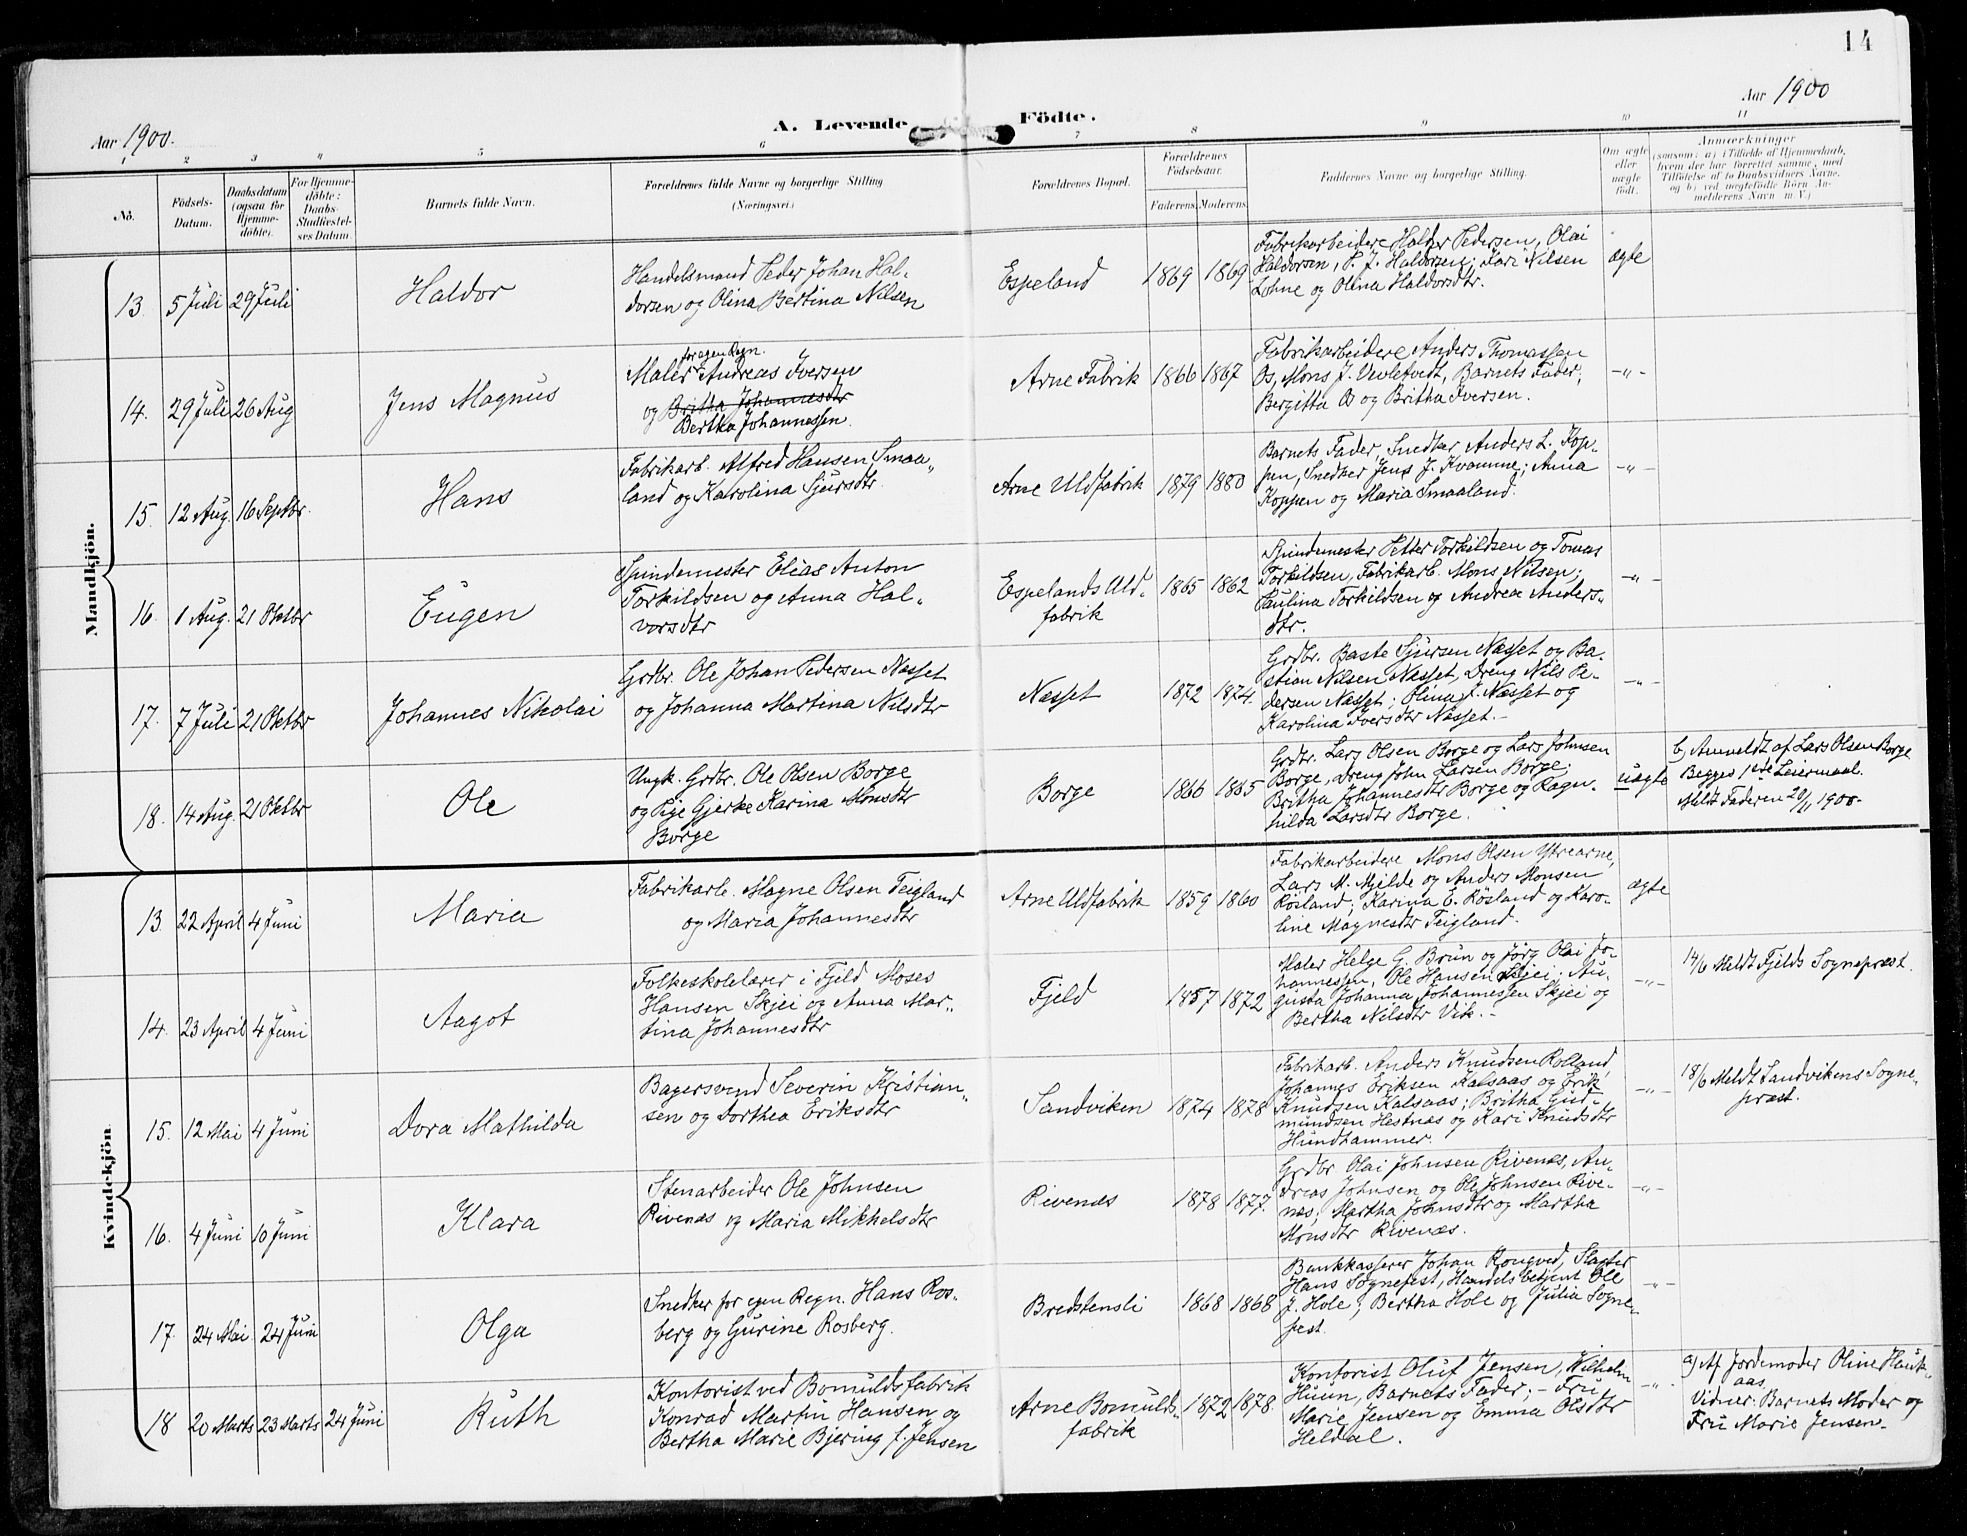 14
Aar 1900.
A. Levende Födte.
Aar 1900
1 2 3 4 5 6 7 8 9 10 11
No.
Födsels-
Datum.
Daabsdatum
(ogsaa for
Hjemme-
döbte).
For Hjemme-
döbte:
Daabs-
Stadfæstel-
ses Datum.
Barnets fulde Navn.
Forældrenes fulde Navne og borgerlige Stilling
(Næringsvei.)
Forældrenes Bopæl.
Forældrenes
Födselsaar.
Faderens. Moderens.
Faddernes Navne og borgerlige Stilling.
Om ægte
eller
uægte
födt.
Anmærkninger
(saasom: a) i Tilfælde af Hjemmedaab,
hvem der har forrettet samme, med
Tilföielse af to Daabsvidners Navne,
og b) ved uægtefödte Börn An-
melderens Navn m. V.)
Mandkjön.
13. 5 Juli 29 Juli
Haldor
Handelsmand Peder Johan Hal-
dorsen og Olina Bertina Nilsen
Espeland
1869 1869
Fabrikarbeidere Haldor Pedersen, Olai
Haldorsen, P. J. Haldorsen; Kari Nilsen
Lohne og Olina Haldorsdtr.
ægte
14. 29 Juli 26 Aug
Jens Magnus
for egen Regn.
Maler Andreas Iversen
og Britha Johannesdtr
Bertha Johannessen.
Arne Fabrik
1866 1867
Fabrikarbeidere Anders Thomassen
Os, Mons J. Vevletvedt, Barnets Fader;
Bergitta Os og Britha Iversen.
-"-
15. 12 Aug. 16 Septbr.
Hans
Fabrikarb. Alfred Hansen Smaa-
land og Karolina Sjursdtr.
Arne Uldfabrik
1879 1880
Barnets Fader, Snedker Anders L. Kop-
pen, Snedker Jens J. Kvamme; Anna
Koppen og Maria Smaaland.
-"-
16. 1 Aug. 21 Oktbr
Eugen
Spindemester Elias Anton
Torkildsen og Anna Hal-
vorsdtr
Espelands Uld-
fabrik
1865 1862
Spindemester Petter Torkildsen og Tomas
Torkildsen, Fabrikarb. Mons Nilsen;
Paulina Torkildsen og Andrea Anders-
dtr.
-"-
17. 7 Juli 21 Oktbr
Johannes Nikolai
Grdbr. Ole Johan Pedersen Næsset
og Johanna Martina Nilsdtr
Næsset
1872 1874.
Grdbr. Baste Sjursen Næsset og Ba-
stian Nilsen Næsset, Dreng Nils Pe-
dersen Næsset; Olina J. Næsset og
Karolina Iversdtr Næsset.-
-"-
18. 14 Aug. 21 Oktbr
Ole
Ungk. Grdbr. Ole Olsen Borge
og Pige Gjerke Karina Monsdtr
Borge
Borge
1866 1865
Grdbr. Lars Olsen Borge og Lars Johnsen
Borge, Dreng John Larsen Borge;
Britha Johannesdtr Borge og Ragn-
hilda Larsdtr Borge.
uægte
b) Anmeldt af Lars Olsen Borge
Begges 1ste Leiermaal.
Meldt Faderen 20/11 1900.
Kvindekjön.
13. 22 April 4 Juni
Maria
Fabrikarb. Magne Olsen Teigland
og Maria Johannesdtr
Arne Uldfabrik
1859 1860
Fabrikarbeidere Mons Olsen Ytrearne,
Lars M. Mjelde og Anders Monsen
Røsland; Karina E. Røsland og Karo-
line Magnesdtr Teigland.
ægte
14. 23 April 4 Juni
Aagot
Folkeskolelærer i Fjeld Moses
Hansen Skjei og Anna Mar-
tina Johannesdtr
Fjeld
1857 1872
Maler Helge G. Brun og Jörg Olai Jo-
hannessen, Ole Hansen Skjei; Au-
gusta Johanna Johannessen Skjei og
Bertha Nilsdtr Vik.-
-"-
14/6 Meldt Fjelds Sognepræst.
15. 12 Mai 4 Juni
Dora Mathilda
Bagersvend Severin Kristian-
sen og Dorthea Eriksdtr
Sandviken
1874 1878
Fabrikarb. Anders Knudsen Rolland,
Johannes Eriksen Kalsaas og Erik
Knudsen Kalsaas; Britha Gud-
mundsen Hestnæs og Kari Knudsdtr
Hundhammer.
-"-
18/6 Meldt Sandvikens Sogne-
præst.
16. 4 Juni 10 Juni
Klara
Stenarbeider Ole Johnsen
Rivenæs og Maria Mikkelsdtr
Rivenæs
1878 1877.
Grdbr Olai Johnsen Rivenæs, An-
dreas Johnsen og Ole Johnsen Rive-
næs; Martha Johnsdtr og Martha
Monsdtr Rivenæs.
-"-
17. 24 Mai 24 Juni
Olga
Snedker for egen Regn. Hans Ros-
berg og Gurine Rosberg.
Bredstensli
1868 1868
Bankkasserer Johan Rongved, Slagter
Hans Sognefest, Handelsbetjent Ole
J. Hole; Bertha Hole og Julia Sogne-
fest.
-"-
18 20 Marts 23 Marts 24 Juni
Ruth
Kontorist ved Bomuldsfabrik
Konrad Martin Hansen og
Bertha Marie Bjering f. Jensen
Arne Bomulds-
fabrik
1872 1878.
Kontorist Oluf Jensen, Wilhelm
Huun, Barnets Fader; - Fru
Marie Jensen og Emma Olsdtr
Heldal.
-"-
a) Af Jordemoder Oline Hauk-
aas
Vidner: Barnets Moder og
Fru Marie Jensen.